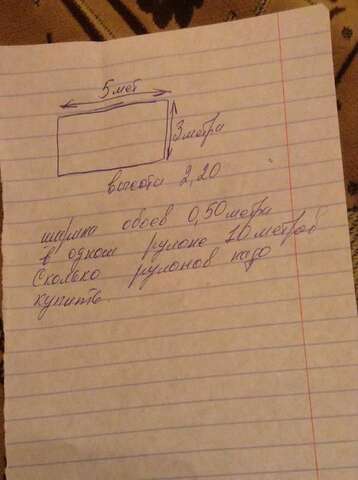 5 мет
3 метра
высота 2,20
ширина обоев 0,50 метра
в одном рулоне 10 метров
Сколько рулонов надо
купить